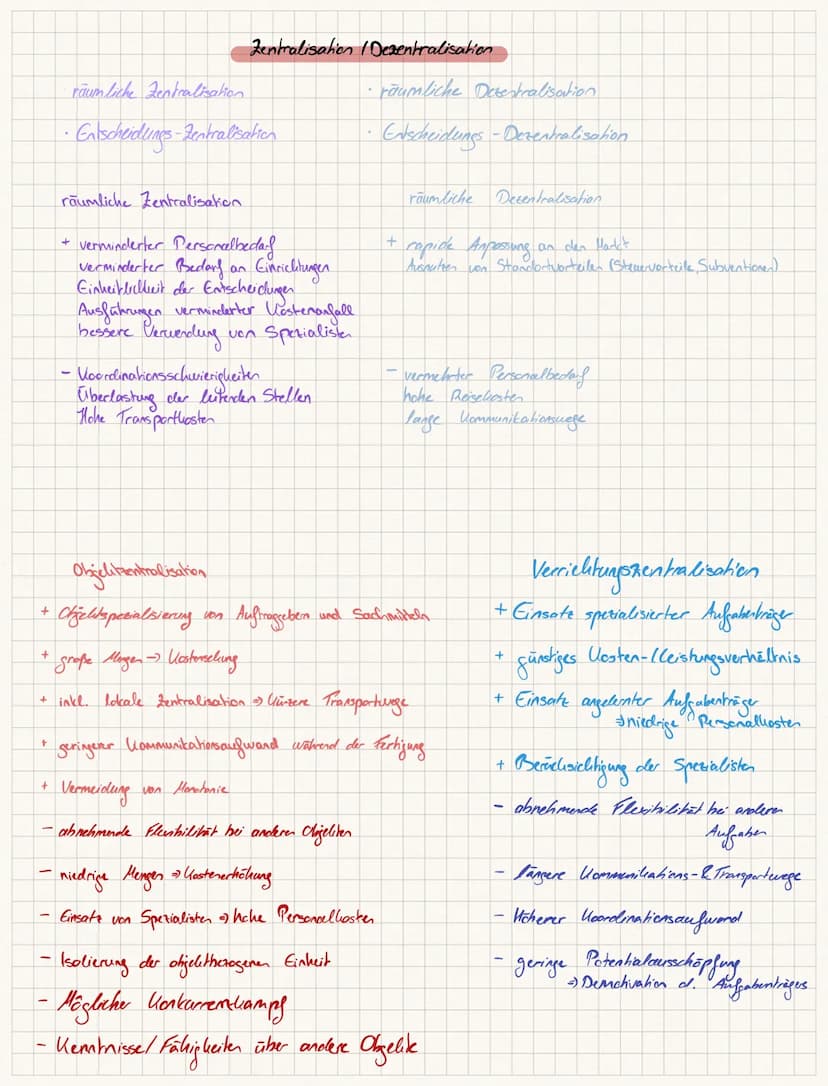 Zentralisation / Dezentralisation
räumliche Zentralisation
· Entscheidungs-Zentralisation
· räumliche Dezentralisation
· Entscheidungs - Dezentralisation
räumliche Zentralisation
+ verminderter Personalbedarf
verminderter Bedarf an Einrichtungen
Einheitlichkeit der Entscheidungen
Ausführungen verminderter Kostenanfall
bessere Verwendung von Spezialisten
- Koordinationsschwierigkeiten
Überlastung der leitenden Stellen
Hohe Transportkosten
räumliche Dezentralisation
+ rapide Anpassung an den Markt
Ausnutzen von Standortvorteilen (Steuervorteile, Subventionen)
- vermehrter Personalbedarf
hohe Reisekosten
lange Kommunikationswege
Objektzentralisation
+ Objektspezialsierung von Auftraggebern und Sachmitteln
+ große Mengen → Kostensenkung
+ inkl. lokale Zentralisation ⇒ kürzere Transportwege
+ geringerer Kommunikationsaufwand während der Fertigung
+ Vermeidung von Monotonie
- abnehmende Flexibilität bei anderen Objekten
- niedrige Mengen ⇒ Kostenerhöhung
- Einsatz von Spezialisten ⇒ hohe Personalkosten
- Isolierung der objektbezogenen Einheit
- Möglicher Konkurrenzkampf
- Kenntnisse/ Fähigkeiten über andere Objekte
Verrichtungszentralisation
+ Einsatz spezialisierter Aufgabenträger
+ günstiges Kosten-/Leistungsverhältnis
+ Einsatz angelernter Aufgabenträger
⇒ niedrige Personalkosten
+ Berücksichtigung der Spezialisten
- abnehmende Flexibilität bei anderen
Aufgaben
- längere Kommunikations- & Transportwege
- Höherer Koordinationsaufwand
- geringe Potentialausschöpfung
⇒ Demotivation d. Aufgabenträgers